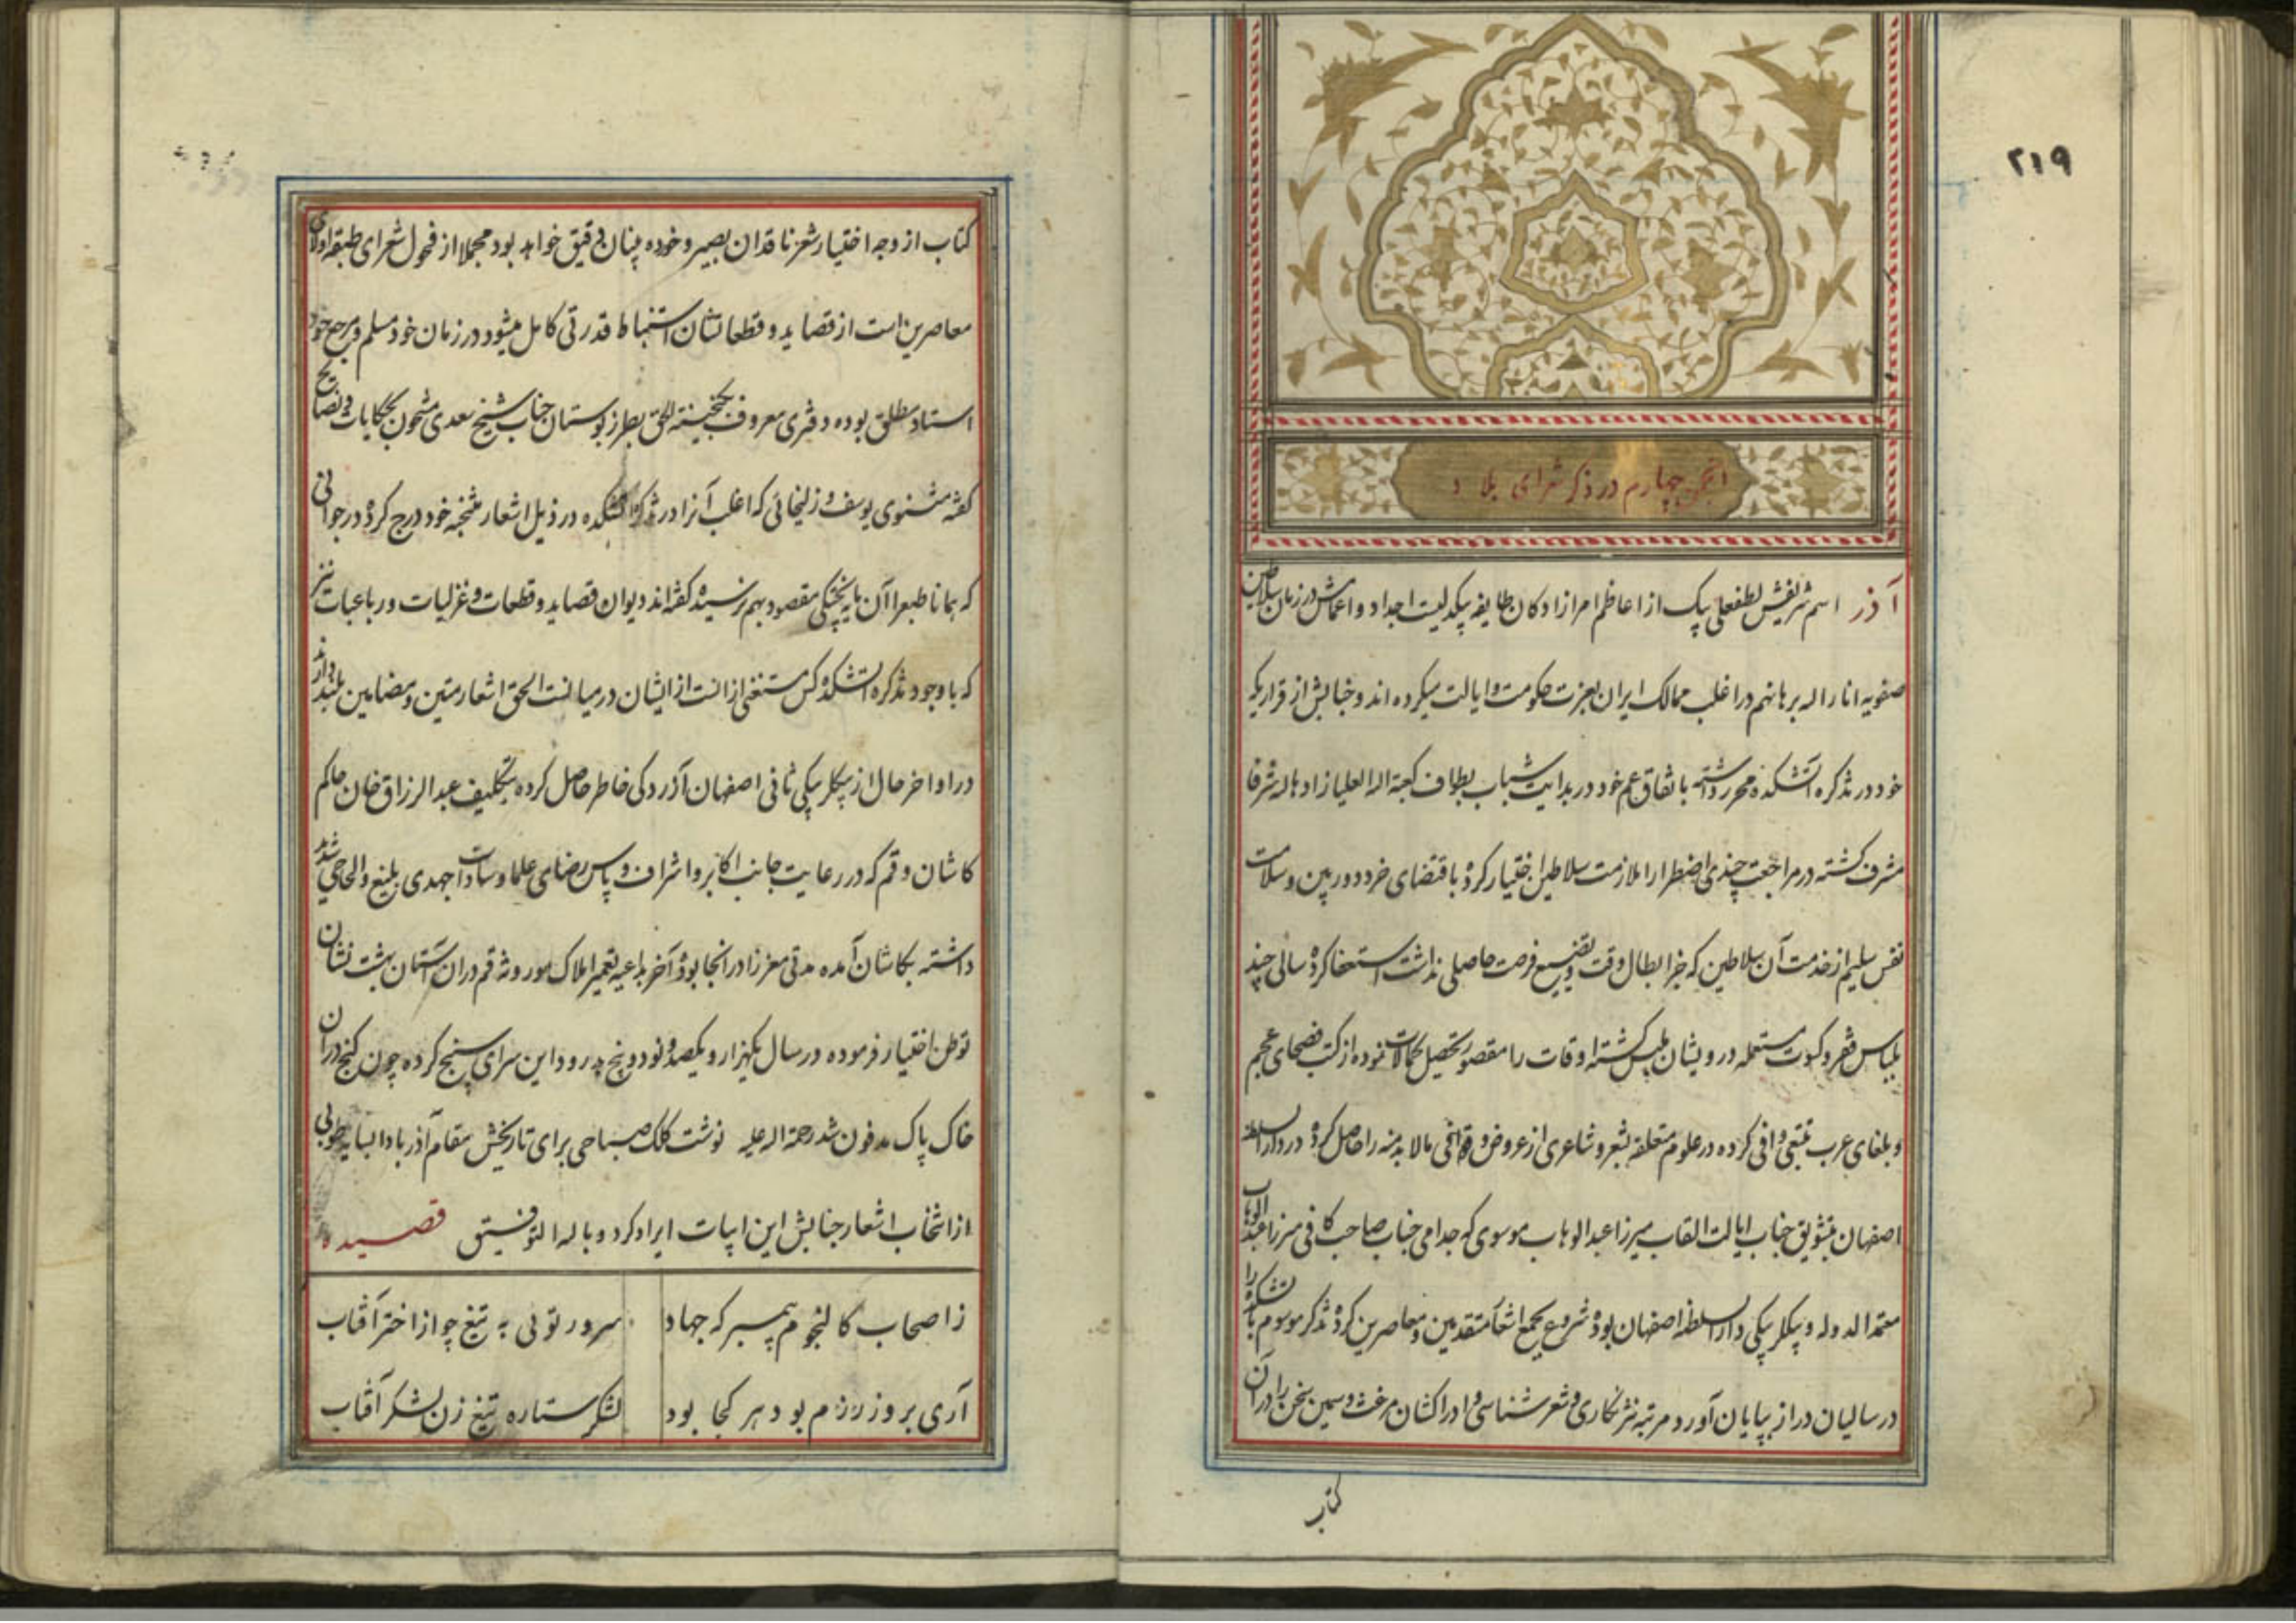 ۲۱۹
انجمن چهارم در ذکر شعرای بلاد
آذر اسم شریفش لطفعلی بیک از اعاظم امرازادکان طایفه بیکدلیست اجداد و اعمامش در زمان سلاطین
صفویه انار اله برهانهم در اغلب ممالک ایران بعزت حکومت و ایالت میکرده اند و جنابش از قراریکه
خود در تذکره آتشکده محرر داشته باتفاق عم خود در بدایت شباب بطواف کعبة اله العلیا زادها اله شرفا
مشرف کشته در مراجعت چندی اضطرارا ملازمت سلاطین اختیار کرده باقتضای خرد دوربین و سلامت
نفس سلیم از خدمت آن سلاطین که جز ابطال وقت و تضییع فرصت حاصلی نداشت استعفا کرده سالی چند
بلباس فقر و کسوت مستعمله درویشان ملبس کشته اوقات را مقصور تحصیل کمالات نموده از کتب فصحای عجم
و بلغای عرب تتبعی وافی کرده در علوم متعلقه بشعر و شاعری از عروض و قوافی مالابد منه را حاصل کرده در دارالسلطنه
اصفهان بتشویق جناب ایالت القاب میرزا عبدالوهاب موسوی که جد امی جناب صاحب کافی میرزا عبدالوهاب
معتمدالدوله و بیکلربیکی دارالسلطنه اصفهان بوده شروع بجمع اشعار متقدمین و معاصرین کرده تذکره موسوم بآتشکده را
در سالیان دراز بپایان آورد مرتبه نثرنکاری و شعرشناسی و ادراکشان مر غث و سمین سخن را در آن
کتاب
کتاب از وجه اختیار شعر ناقدان بصیر و خورده بینان دقیق خواهد بود مجملا از فحول شعرای طبقه اولای
معاصرین است از قصاید و قطعاتشان استنباط قدرتی کامل میشود در زمان خود مسلم و مرجع خود
استاد مطلق بوده دفتری معروف بکنجینة الحق بطرز بوستان جناب شیخ سعدی مشحون بحکایات و نصایح
کفته مثنوی یوسف و زلیخائی که اغلب آنرا در تذکره آتشکده در ذیل اشعار منتخبه خود درج کرده در جوانی
که همانا طبع را آن پایه پختکی مقصود بهم نرسیده کفته اند دیوان قصاید و قطعات و غزلیات و رباعیات نیز
که با وجود تذکره آتشکده کس مستغنی از آنست از ایشان در میانست الحق اشعار متین و مضامین بلند دارند
در اواخر حال از بیکلربیکی ثانی اصفهان آزردکی خاطر حاصل کرده بتکلیف عبدالرزاق خان حاکم
کاشان و قم که در رعایت جانب اکابر و اشراف و پاس رضای علما و سادات جهدی بلیغ و الحاحی شدید
داشته بکاشان آمده مدتی معززا در آنجا بوده آخر بداعیه تعمیر املاک موروثه قم در آن آستان بهشت نشان
توطن اختیار فرموده در سال یکهزار و یکصد و نود و پنج بدرود این سرای سپنج کرده چون کنج در آن
خاک پاک مدفون شد رحمة اله علیه نوشت کلک صباحی برای تاریخش مقام آذر بادا بسایه طوبی
از انتخاب اشعار جنابش این ابیات ایراد کرد و باله التوفیق قصیده
ز اصحاب کالنجوم پیمبر که جهاد سرور توئی به تیغ چو از اختر آفتاب
آری بروز رزم بود هر کجا بود لشکر ستاره تیغ زن لشکر آفتاب